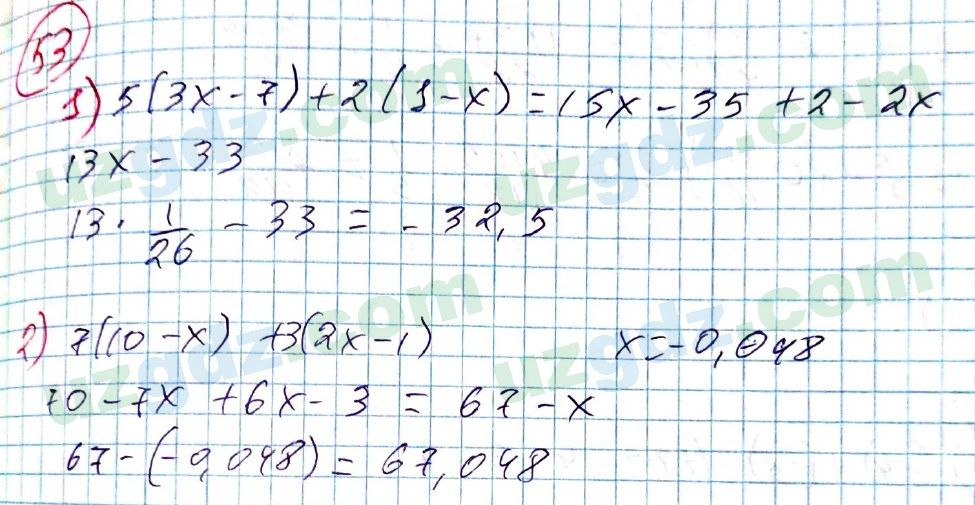 53
1) 5(3x-7)+2(1-x)=15x-35+2-2x
13x-33
13·1/26-33=-32,5
2) 7(10-x)+3(2x-1) x=-0,048
70-7x+6x-3=67-x
67-(-0,048)=67,048
uzgdz.com
uzgdz.com
uzgdz.com
uzgdz.com